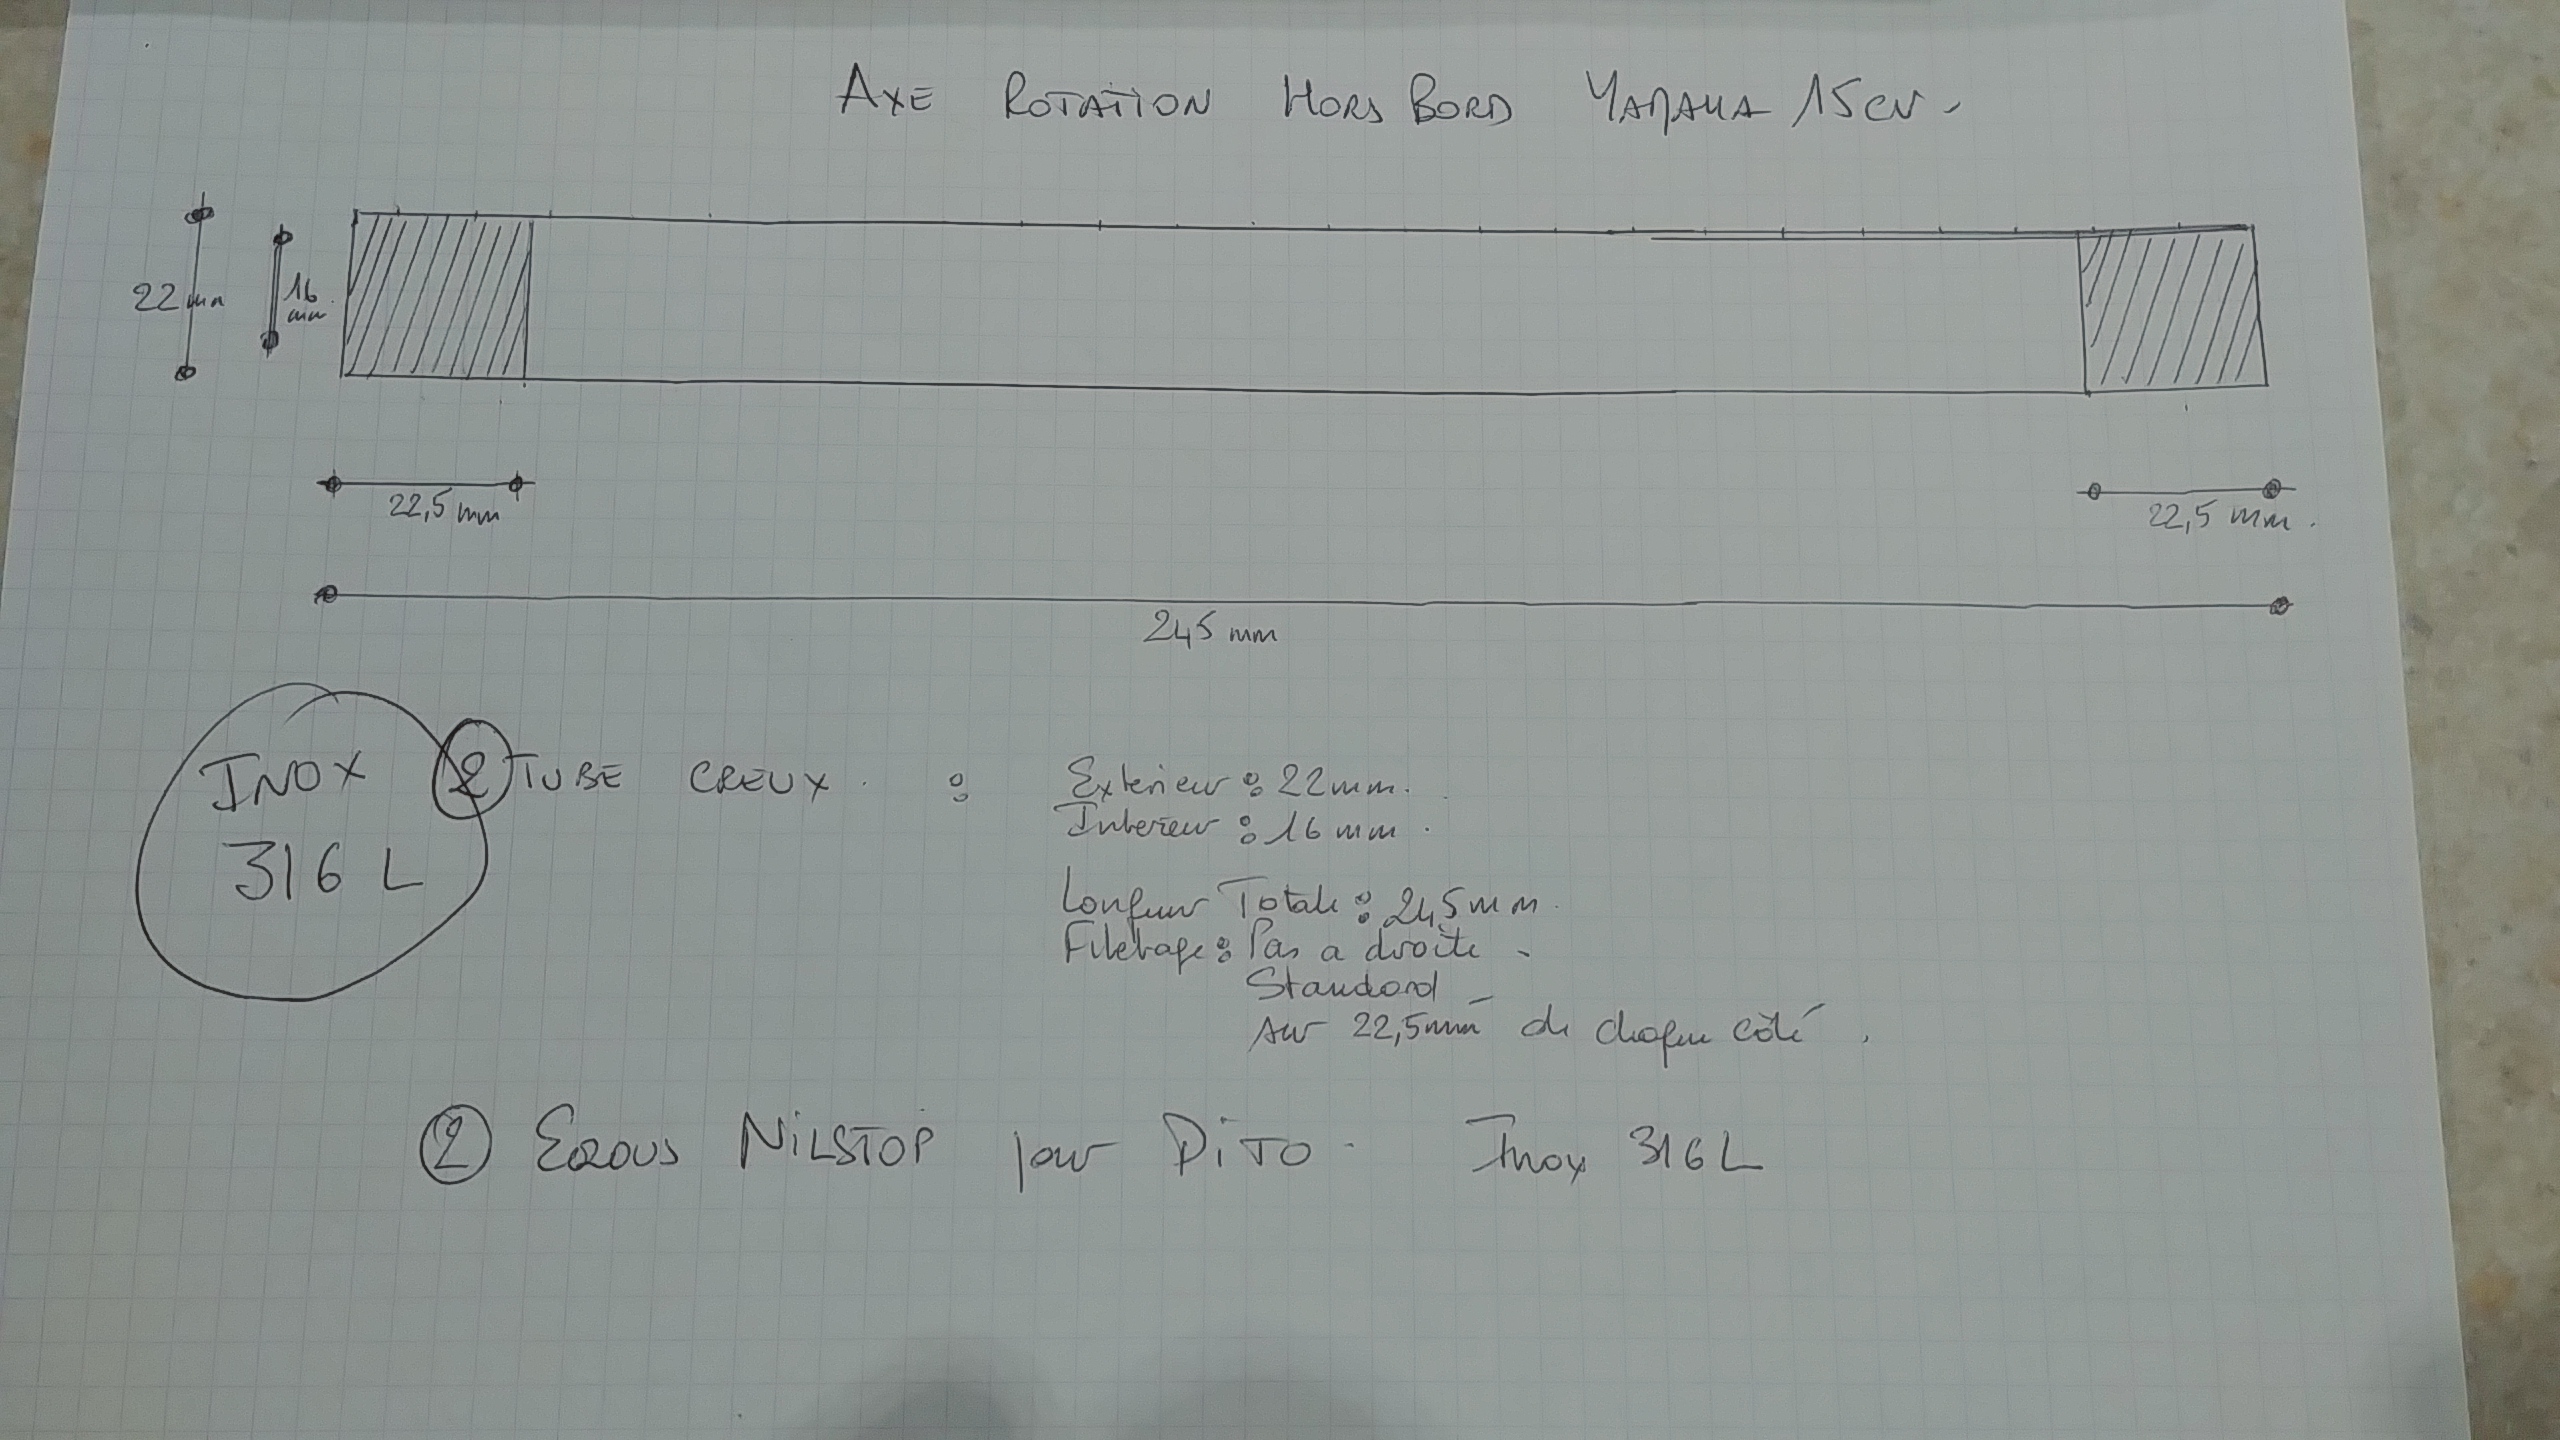 AXE ROTATION HORS BORD YAMAHA 15 CV.
22 mm
16
mm
22,5 mm
22,5 mm.
245 mm
INOX
316 L
2 TUBE CREUX. :
Exterieur : 22 mm.
Interieur : 16 mm.
Longueur Totale : 245 mm.
Filetage : Pas a droite -
Standard
sur 22,5 mm de chaque côté.
2 ECROUS NILSTOP pour DITO. Inox 316 L